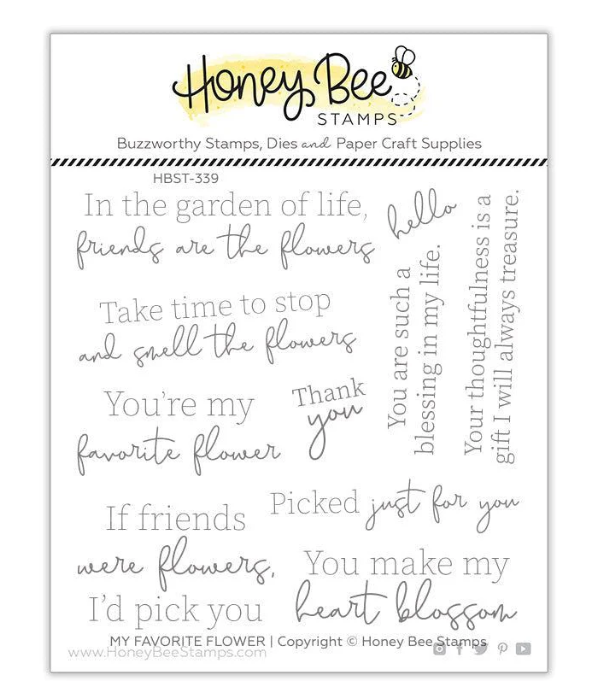 Honey Bee
STAMPS
Buzzworthy Stamps, Dies and Paper Craft Supplies
HBST-339
In the garden of life,
friends are the flowers
hello
Take time to stop
and smell the flowers
You are such a
blessing in my life.
Your thoughtfulness is a
gift I will always treasure.
You're my
favorite flower
Thank
you
Picked just for you
If friends
were flowers,
I'd pick you
You make my
heart blossom
MY FAVORITE FLOWER | Copyright © Honey Bee Stamps
www.HoneyBeeStamps.com